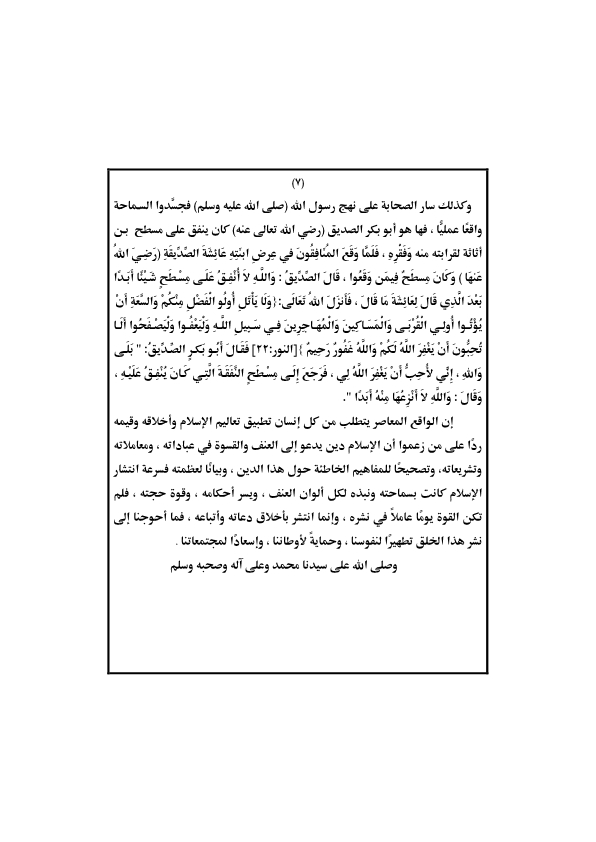 (٧)
وكذلك سار الصحابة على نهج رسول الله (صلى الله عليه وسلم) فجسَّدوا السماحة
واقعًا عمليًّا ، فها هو أبو بكر الصديق (رضي الله تعالى عنه) كان ينفق على مسطح بن
أثاثة لقرابته منه وَفَقْرِهِ ، فَلَمَّا وَقَعَ المُنَافِقُونَ في عِرضِ ابنَتِهِ عَائِشَةَ الصِّدِّيقَةِ (رَضِيَ اللهُ
عَنهَا ) وَكَانَ مِسطَحُ فِيمَن وَقَعُوا ، قَالَ الصِّدِّيقُ : وَاللَّهِ لاَ أُنْفِقُ عَلَى مِسْطَحٍ شَيْئًا أَبَدًا
بَعْدَ الَّذِي قَالَ لِعَائِشَةَ مَا قَالَ ، فَأَنزَلَ اللهُ تَعَالَى:{وَلَا يَأْتَلِ أُولُو الْفَضْلِ مِنْكُمْ وَالسَّعَةِ أَنْ
يُؤْتُوا أُولِي الْقُرْبَى وَالْمَسَاكِينَ وَالْمُهَاجِرِينَ فِي سَبِيلِ اللَّهِ وَلْيَعْفُوا وَلْيَصْفَحُوا أَلَا
تُحِبُّونَ أَنْ يَغْفِرَ اللَّهُ لَكُمْ وَاللَّهُ غَفُورٌ رَحِيمٌ }[النور:٢٢] فَقَالَ أَبُو بَكرٍ الصِّدِّيقُ: " بَلَى
وَاللهِ ، إِنِّي لأُحِبُّ أَنْ يَغْفِرَ اللَّهُ لِي ، فَرَجَعَ إِلَى مِسْطَحٍ النَّفَقَةَ الَّتِي كَانَ يُنْفِقُ عَلَيْهِ ،
وَقَالَ : وَاللَّهِ لاَ أَنْزِعُهَا مِنْهُ أَبَدًا ".
إن الواقع المعاصر يتطلب من كل إنسان تطبيق تعاليم الإسلام وأخلاقه وقيمه
ردًا على من زعموا أن الإسلام دين يدعو إلى العنف والقسوة في عباداته ، ومعاملاته
وتشريعاته، وتصحيحًا للمفاهيم الخاطئة حول هذا الدين ، وبيانًا لعظمته فسرعة انتشار
الإسلام كانت بسماحته ونبذه لكل ألوان العنف ، ويسر أحكامه ، وقوة حجته ، فلم
تكن القوة يومًا عاملاً في نشره ، وإنما انتشر بأخلاق دعاته وأتباعه ، فما أحوجنا إلى
نشر هذا الخلق تطهيرًا لنفوسنا ، وحمايةً لأوطاننا ، وإسعادًا لمجتمعاتنا .
وصلى الله على سيدنا محمد وعلى آله وصحبه وسلم